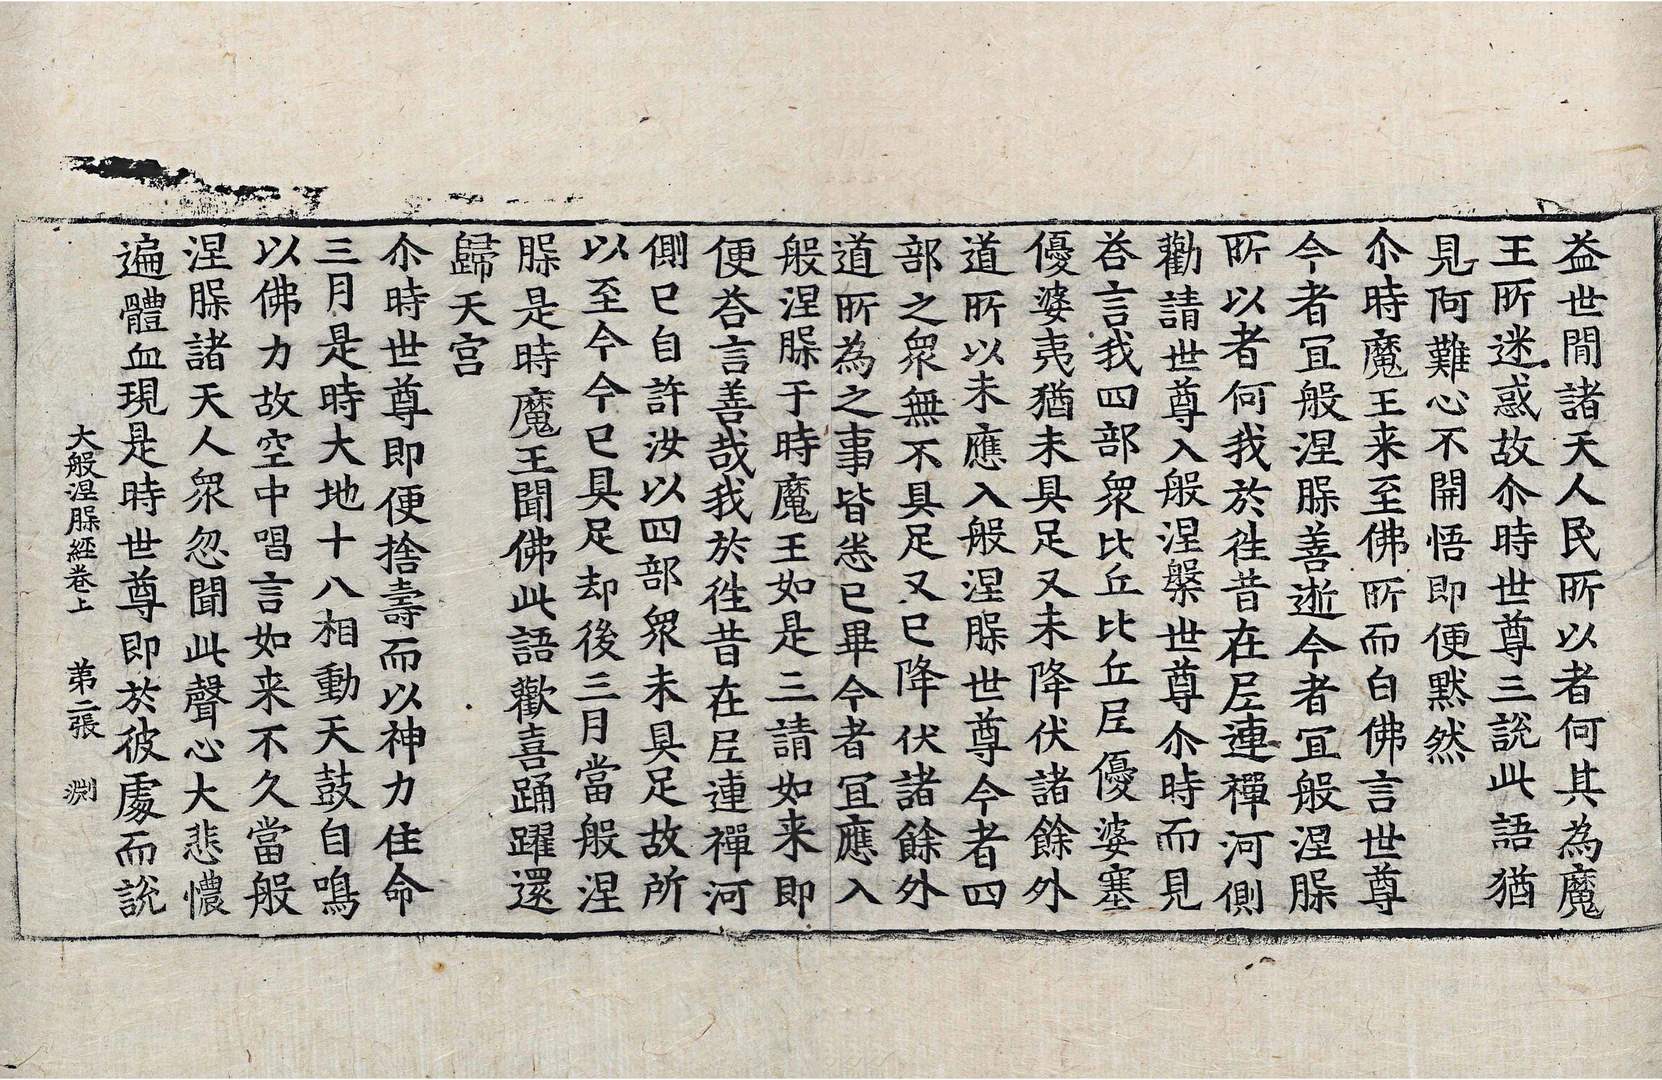 益世間諸天人民所以者何其為魔
王所迷惑故尒時世尊三說此語猶
見阿難心不開悟即便默然
尒時魔王来至佛所而白佛言世尊
今者冝般涅槃善逝今者冝般涅槃
所以者何我於徃昔在尼連禪河側
勸請世尊入般涅槃世尊尒時而見
荅言我四部衆比丘比丘尼優婆塞
優婆夷猶未具足又未降伏諸餘外
道所以未應入般涅槃世尊今者四
部之衆無不具足又已降伏諸餘外
道所為之事皆悉已畢今者冝應入
般涅槃于時魔王如是三請如来即
便荅言善哉我於徃昔在尼連禪河
側已自許汝以四部衆未具足故所
以至今今已具足却後三月當般涅
槃是時魔王聞佛此語歡喜踊躍還
歸天宫
尒時世尊即便捨壽而以神力住命
三月是時大地十八相動天鼓自鳴
以佛力故空中唱言如来不久當般
涅槃諸天人衆忽聞此聲心大悲懷
遍體血現是時世尊即於彼處而說
大般涅槃經卷上 第二張 渊